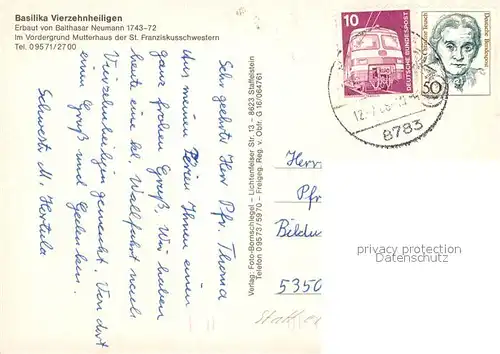 Basilika Vierzehnheiligen
Erbaut von Balthasar Neumann 1743–72
Im Vordergrund Mutterhaus der St. Franziskusschwestern
Tel. 09571/2700
Sehr geehrter Herr Pfr. Thoma
Aus meinen Ferien Ihnen einen
ganz frohen Gruß. Wir haben
heute eine kl. Wallfahrt nach
Vierzehnheiligen gemacht. Von dort
einen Gruß und Gedenken.
Schwester M. Hertula
Verlag: Foto-Bornschlegel – Lichtenfelser Str. 13 – 8623 Staffelstein
Telefon 09573/5970 – Freigeg. Reg. v. Obfr. G 16/064761
10
DEUTSCHE BUNDESPOST
Christine Teusch
Deutsche Bundespost
50
8783
Herrn
Pfr
Bildu
5350
privacy protection
Datenschutz